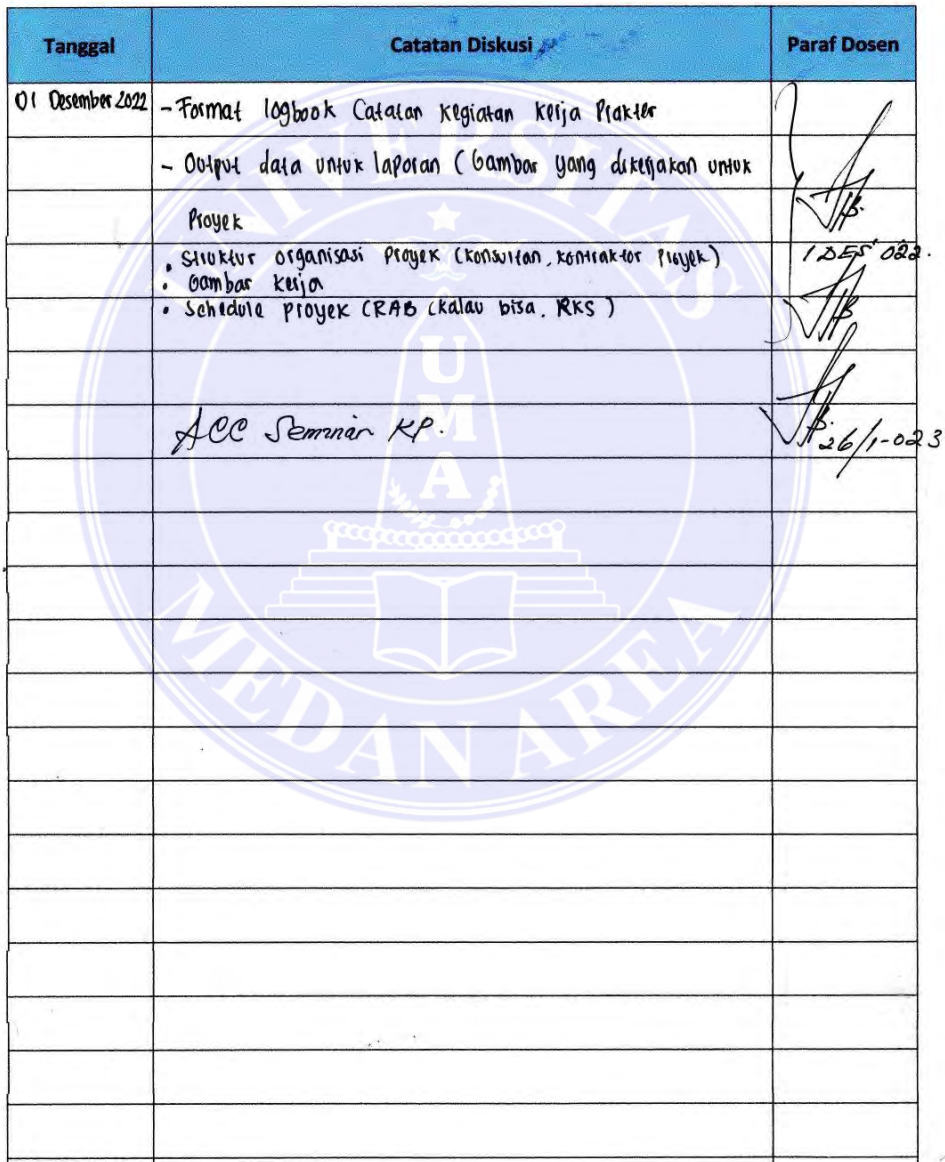 Tanggal Catatan Diskusi Paraf Dosen
01 Desember 2022 - Format logbook Catatan Kegiatan Kerja Prakter
- Output data untuk laporan (Gambar yang dikerjakan untuk
Proyek
• Struktur organisasi Proyek (konsultan, kontraktor proyek)
1 DES' 022.
• Gambar kerja
• Schedule proyek (RAB (kalau bisa, RKS)
ACC Seminar KP.
26/1-023
UNIVERSITAS
UMA
MEDAN AREA